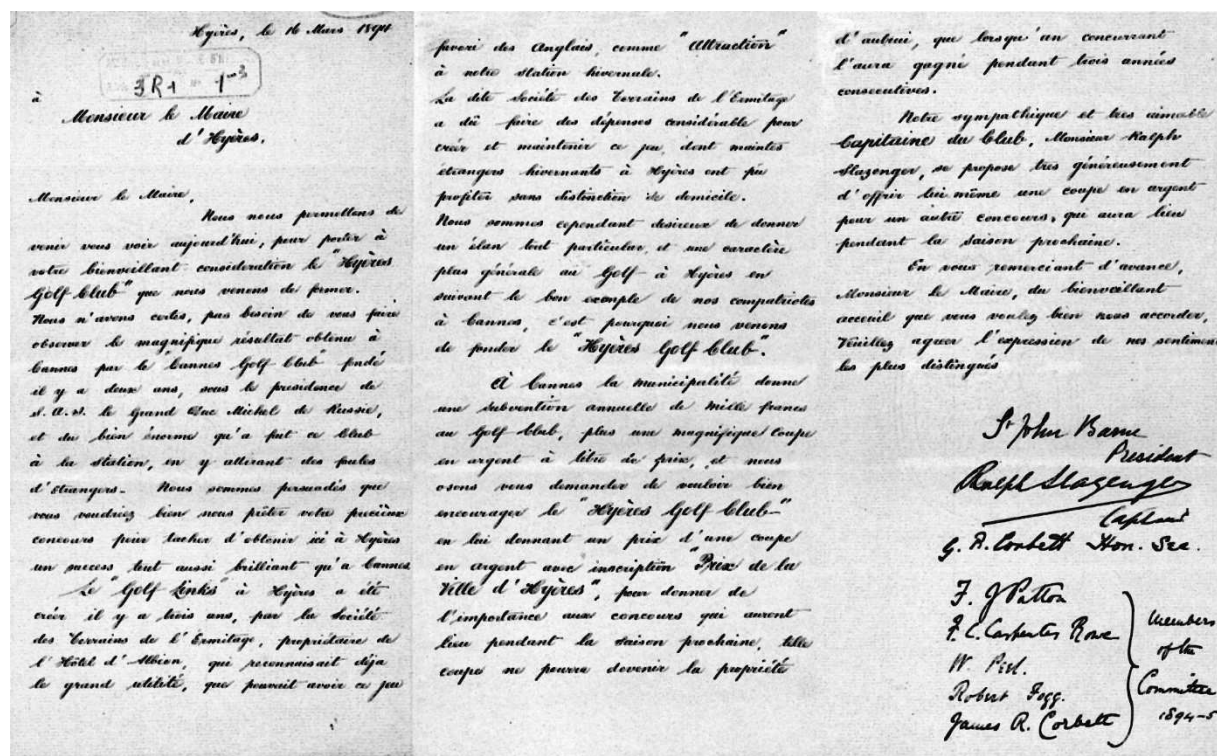 Hyères, le 16 Mars 1894
3R1 1-3
à
Monsieur le Maire
d'Hyères.
Monsieur le Maire,
Nous nous permettons de
venir vous voir aujourd'hui, pour porter à
votre bienveillant consideration le "Hyères
Golf Club" que nous venons de former.
Nous n'avons certes, pas besoin de vous faire
observer le magnifique résultat obtenu à
Cannes par le "Cannes Golf Club" fondé
il y a deux ans, sous le presidence de
S. A. S. le Grand Duc Michel de Russie,
et du bien énorme qu'a fait ce Club
à la Station, en y attirant des foules
d'étrangers. Nous sommes persuadés que
vous voudriez bien nous prêter votre précieux
concours pour tacher d'obtenir ici à Hyères
un success tout aussi brilliant qu'a Cannes
Le "Golf Links" à Hyères a été
créer il y a trois ans, par la Société
des Terrains de l'Ermitage, propriétaire de
l'Hôtel d'Albion, qui reconnaisait déja
le grand utilité, que pouvait avoir ce jeu
favori des Anglais, comme "Attraction"
à notre station hivernale.
La dite Société des Terrains de l'Ermitage
a dû faire des dépenses considérable pour
créer et maintenir ce jeu, dont maintes
étrangers hivernants à Hyères ont pu
profiter sans distinction de domicile.
Nous sommes cependant desireux de donner
un élan tout particular, et une caractère
plus générale au Golf à Hyères en
suivant le bon exemple de nos compatriotes
à Cannes, c'est pourquoi nous venons
de fonder le "Hyères Golf Club".
À Cannes la municipalité donne
une subvention annuelle de mille francs
au Golf Club, plus une magnifique Coupe
en argent à titre de prix, et nous
osons vous demander de vouloir bien
encourager le "Hyères Golf Club"
en lui donnant un prix d'une coupe
en argent avec inscription "Prix de la
Ville d'Hyères", pour donner de
l'importance aux concours qui auront
lieu pendant la saison prochaine, telle
coupe ne pourra devenir la propriété
d'autrui, que lorsqu'un concurrant
l'aura gagné pendant trois années
consecutives.
Notre sympathique et tres aimable
Capitaine du Club, Monsieur Ralph
Slazenger, se propose tres généreusement
d'offrir lui même une coupe en argent
pour un autre concours, qui aura lieu
pendant la saison prochaine.
En vous remerciant d'avance,
Monsieur le Maire, du bienveillant
acceuil que vous voulez bien nous accorder,
Veuillez agreer l'expression de nos sentiments
les plus distingués
St John Barne
President
Ralph Slazenger
Captain
G. A. Corbett Hon. Sec.
F. J Patton
F. C. Carpenter Rowe
W. Peel.
Robert Fogg.
James R. Corbett
Members
of the
Committee
1894-5